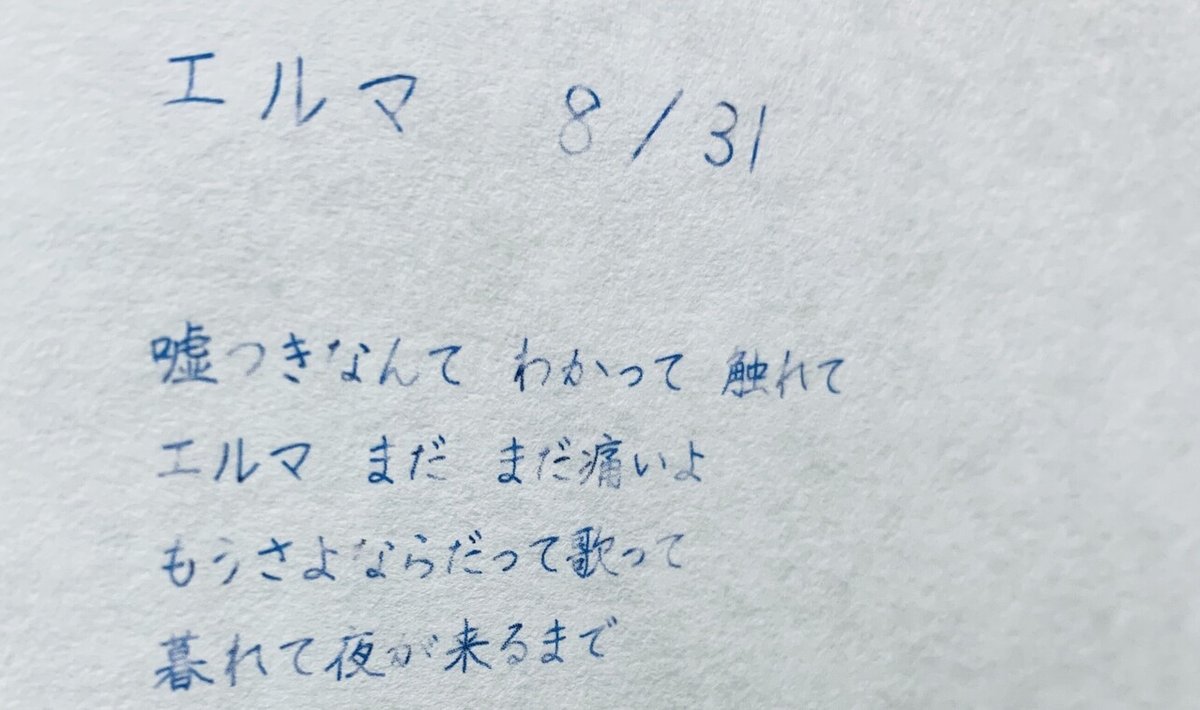 エルマ 8/31
嘘つきなんて わかって 触れて
エルマ まだ まだ痛いよ
もうさよならだって歌って
暮れて夜が来るまで